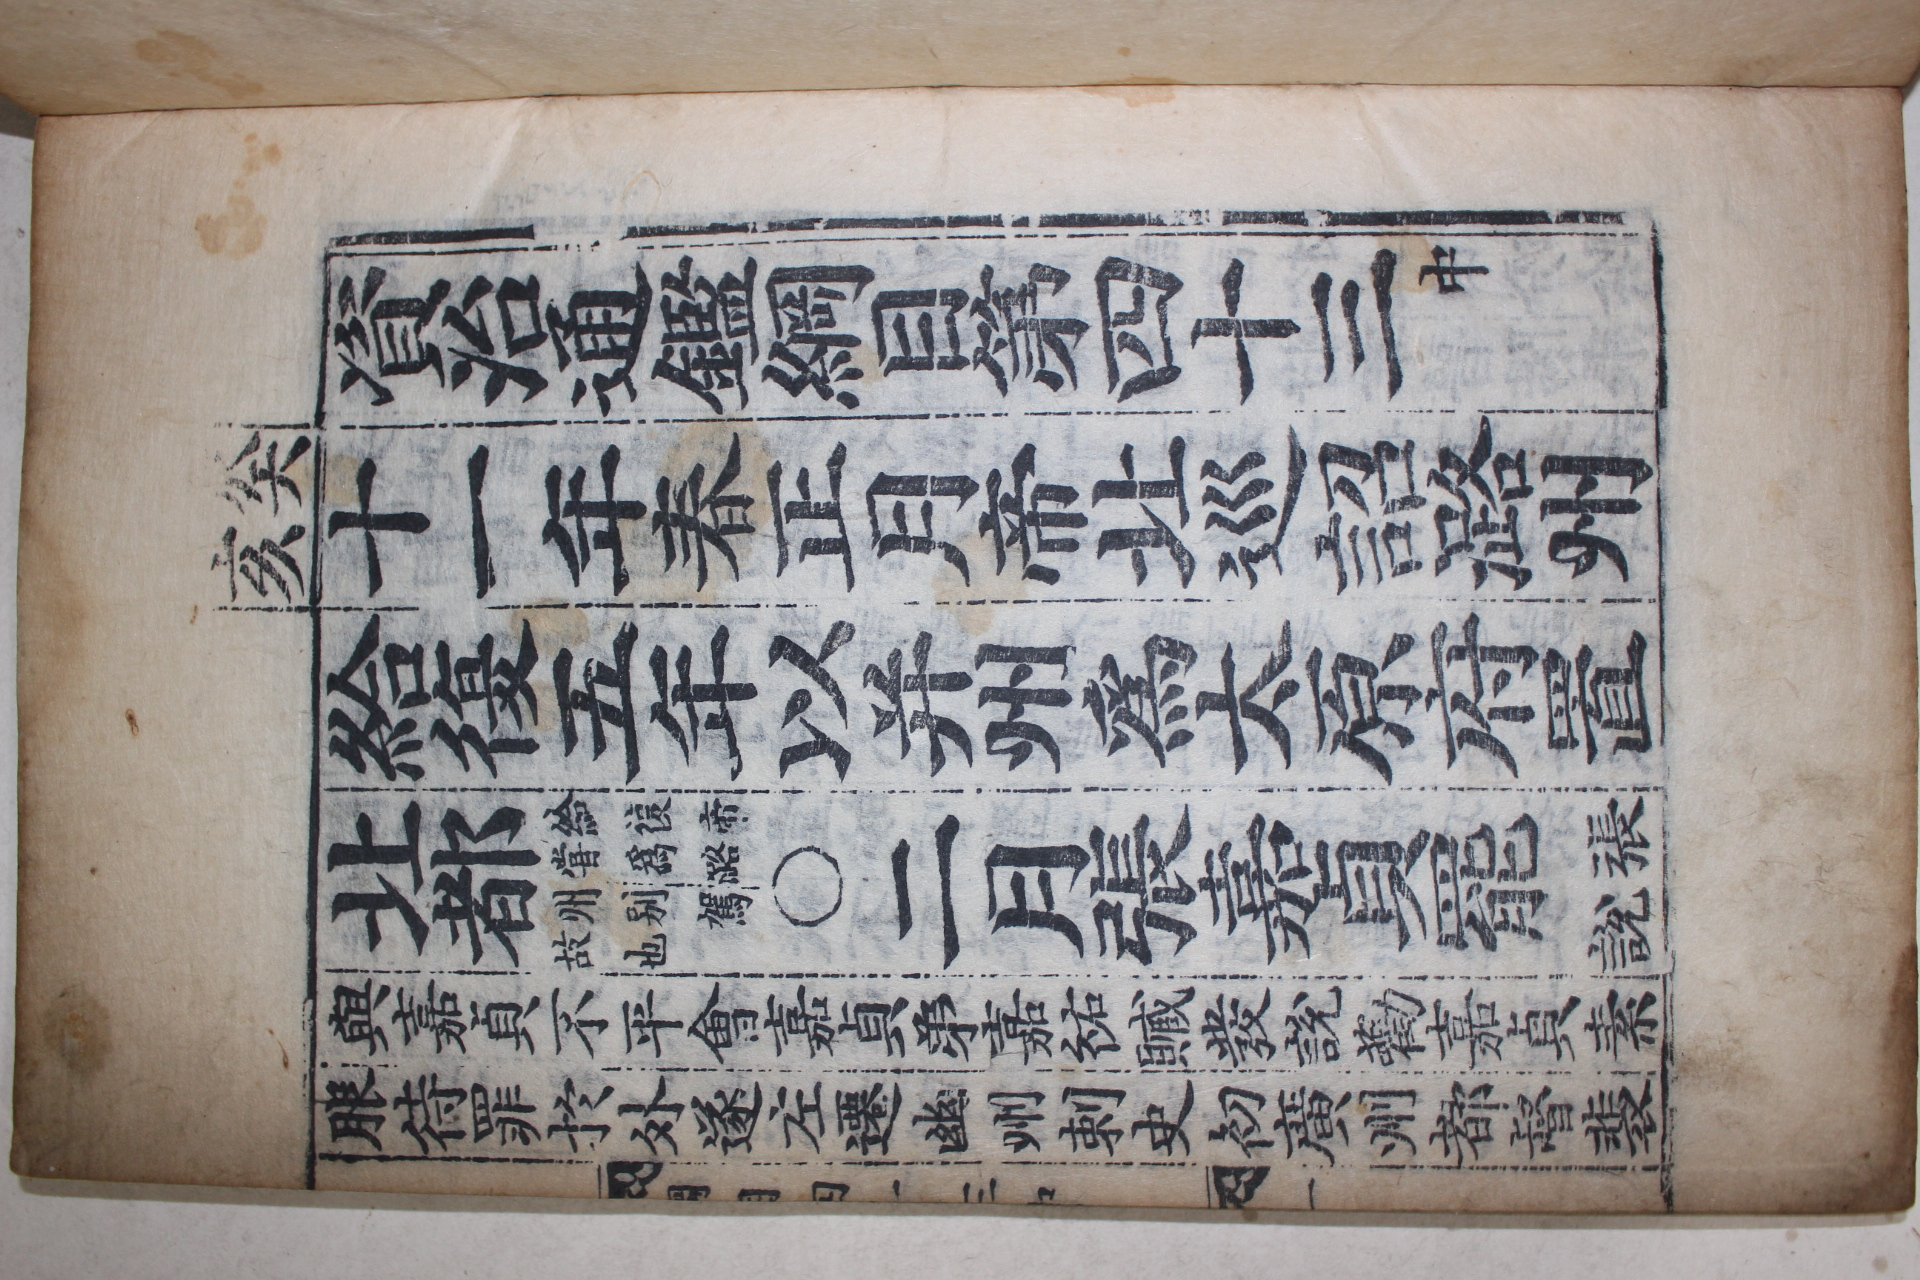 資治通鑑綱目第四十三中
癸亥
十一年春正月帝北巡詔潞州
給復五年以并州爲太原府置
北都
給復帝
嘗爲潞
州別駕
故也
○二月張嘉貞罷
張
說
與嘉貞不平會嘉貞弟嘉祐贓發說勸嘉貞素
服待罪於外遂左遷幽州刺史初廣州都督裴
綱目四十三中
一